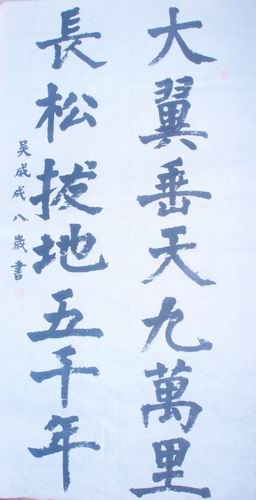 大翼垂天九萬里
長松拔地五千年
吳成成八歲書